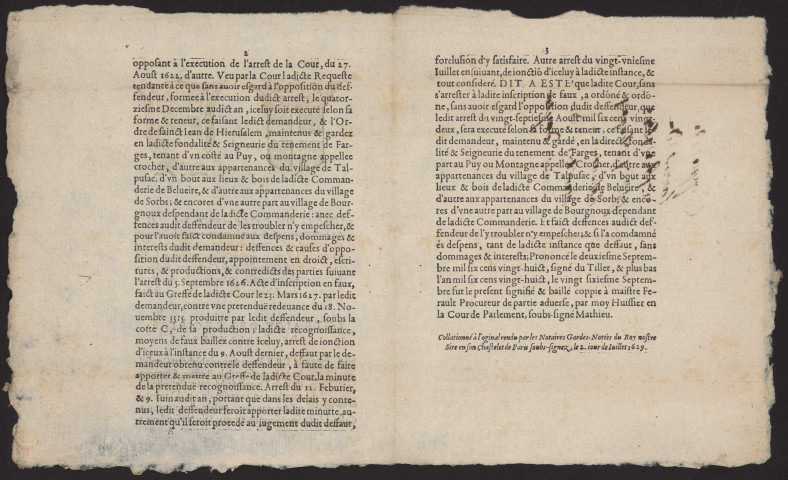 2
opposant à l'execution de l'arrest de la Cour, du 27.
Aoust 1622, d'autre. Veu par la Cour ladicte Requeste
tendante à ce que sans auoir esgard à l'opposition du def-
fendeur, formee à l'execution dudict arrest, le quator-
ziesme Decembre audict an, iceluy soit executé selon sa
forme & teneur, ce faisant ledict demandeur, & l'Or-
dre de sainct Iean de Hierusalem, maintenus & gardez
en ladicte fondalité & Seigneurie du tenement de Far-
ges, tenant d'vn costé au Puy, ou montagne appellee
crochet, d'autre aux appartenances du village de Tal-
pusac, d'vn bout aux lieux & bois de ladicte Comman-
derie de Belueire, & d'autre aux appartenances du village
de Sorbs; & encores d'vne autre part au village de Bour-
gnoux despendant de ladicte Commanderie: auec def-
fences audit deffendeur de les troubler n'y empescher, &
pour l'auoir faict condamné aux despens, dommages &
interests dudit demandeur: deffences & causes d'oppo-
sition dudit deffendeur, appointement en droict, escri-
tures, & productions, & contredicts des parties suiuant
l'arrest du 5. Septembre 1626. Acte d'inscription en faux,
faict au Greffe de ladicte Cour le 23. Mars 1627. par ledit
demandeur, contre vne pretenduë redeuance du 18. No-
uembre 1515. produitte par ledit deffendeur, soubs la
cotte C, de sa production; ladicte recognoissance,
moyens de faux baillez contre iceluy, arrest de ionction
d'iceux à l'instance du 9. Aoust dernier, deffaut par le de-
mandeur obtenu contre le deffendeur, à faute de faire
apporter & mettre au Greffe de ladicte Cour, la minute
de la pretenduë recognoissance. Arrest du 12. Feburier,
& 9. Iuin audit an, portant que dans les delais y conte-
nus, ledit deffendeur feroit apporter ladite minutte, au-
trement qu'il seroit procedé au iugement dudit deffaut,
3
forclusion d'y satisfaire. Autre arrest du vingt-vniesme
Iuillet ensuiuant, de ionctiõ d'iceluy à ladicte instance, &
tout consideré. DIT A ESTE' que ladite Cour, sans
s'arrester à ladite inscription de faux, a ordõné & ordõ-
ne, sans auoir esgard l'opposition dudit deffendeur, que
ledit arrest du vingt-septiesme Aoust mil six cens vingt-
deux, sera executé selon sa forme & teneur, ce faisant le-
dit demandeur, maintenu & gardé, en la directe fonda-
lité & Seigneurie du tenement de Farges, tenant d'vne
part au Puy ou Montagne appellé Crochet, d'autre aux
appartenances du village de Talpusac, d'vn bout aux
lieux & bois de ladicte Commanderie de Belueire, &
d'autre aux appartenances du village de Sorbs, & enco-
res d'vne autre part au village de Bourgnoux dependant
de ladicte Commanderie. Et faict deffences audict def-
fendeur de l'y troubler n'y empescher; & si l'a condamné
és despens, tant de ladicte instance que deffaut, sans
dommages & interests; Prononcé le deuxiesme Septem-
bre mil six cens vingt-huict, signé du Tillet, & plus bas
l'an mil six cens vingt-huict, le vingt sixiesme Septem-
bre fut le present signifié & baillé coppie à maistre Fe-
rault Procureur de partie aduerse, par moy Huissier en
la Cour de Parlement, soubs-signé Mathieu.
Collationné à l'original rendu par les Notaires Gardes-Nottes du Roy nostre
Sire en son Chastelet de Paris soubs-signez, le 2. iour de Iuillet 1629.